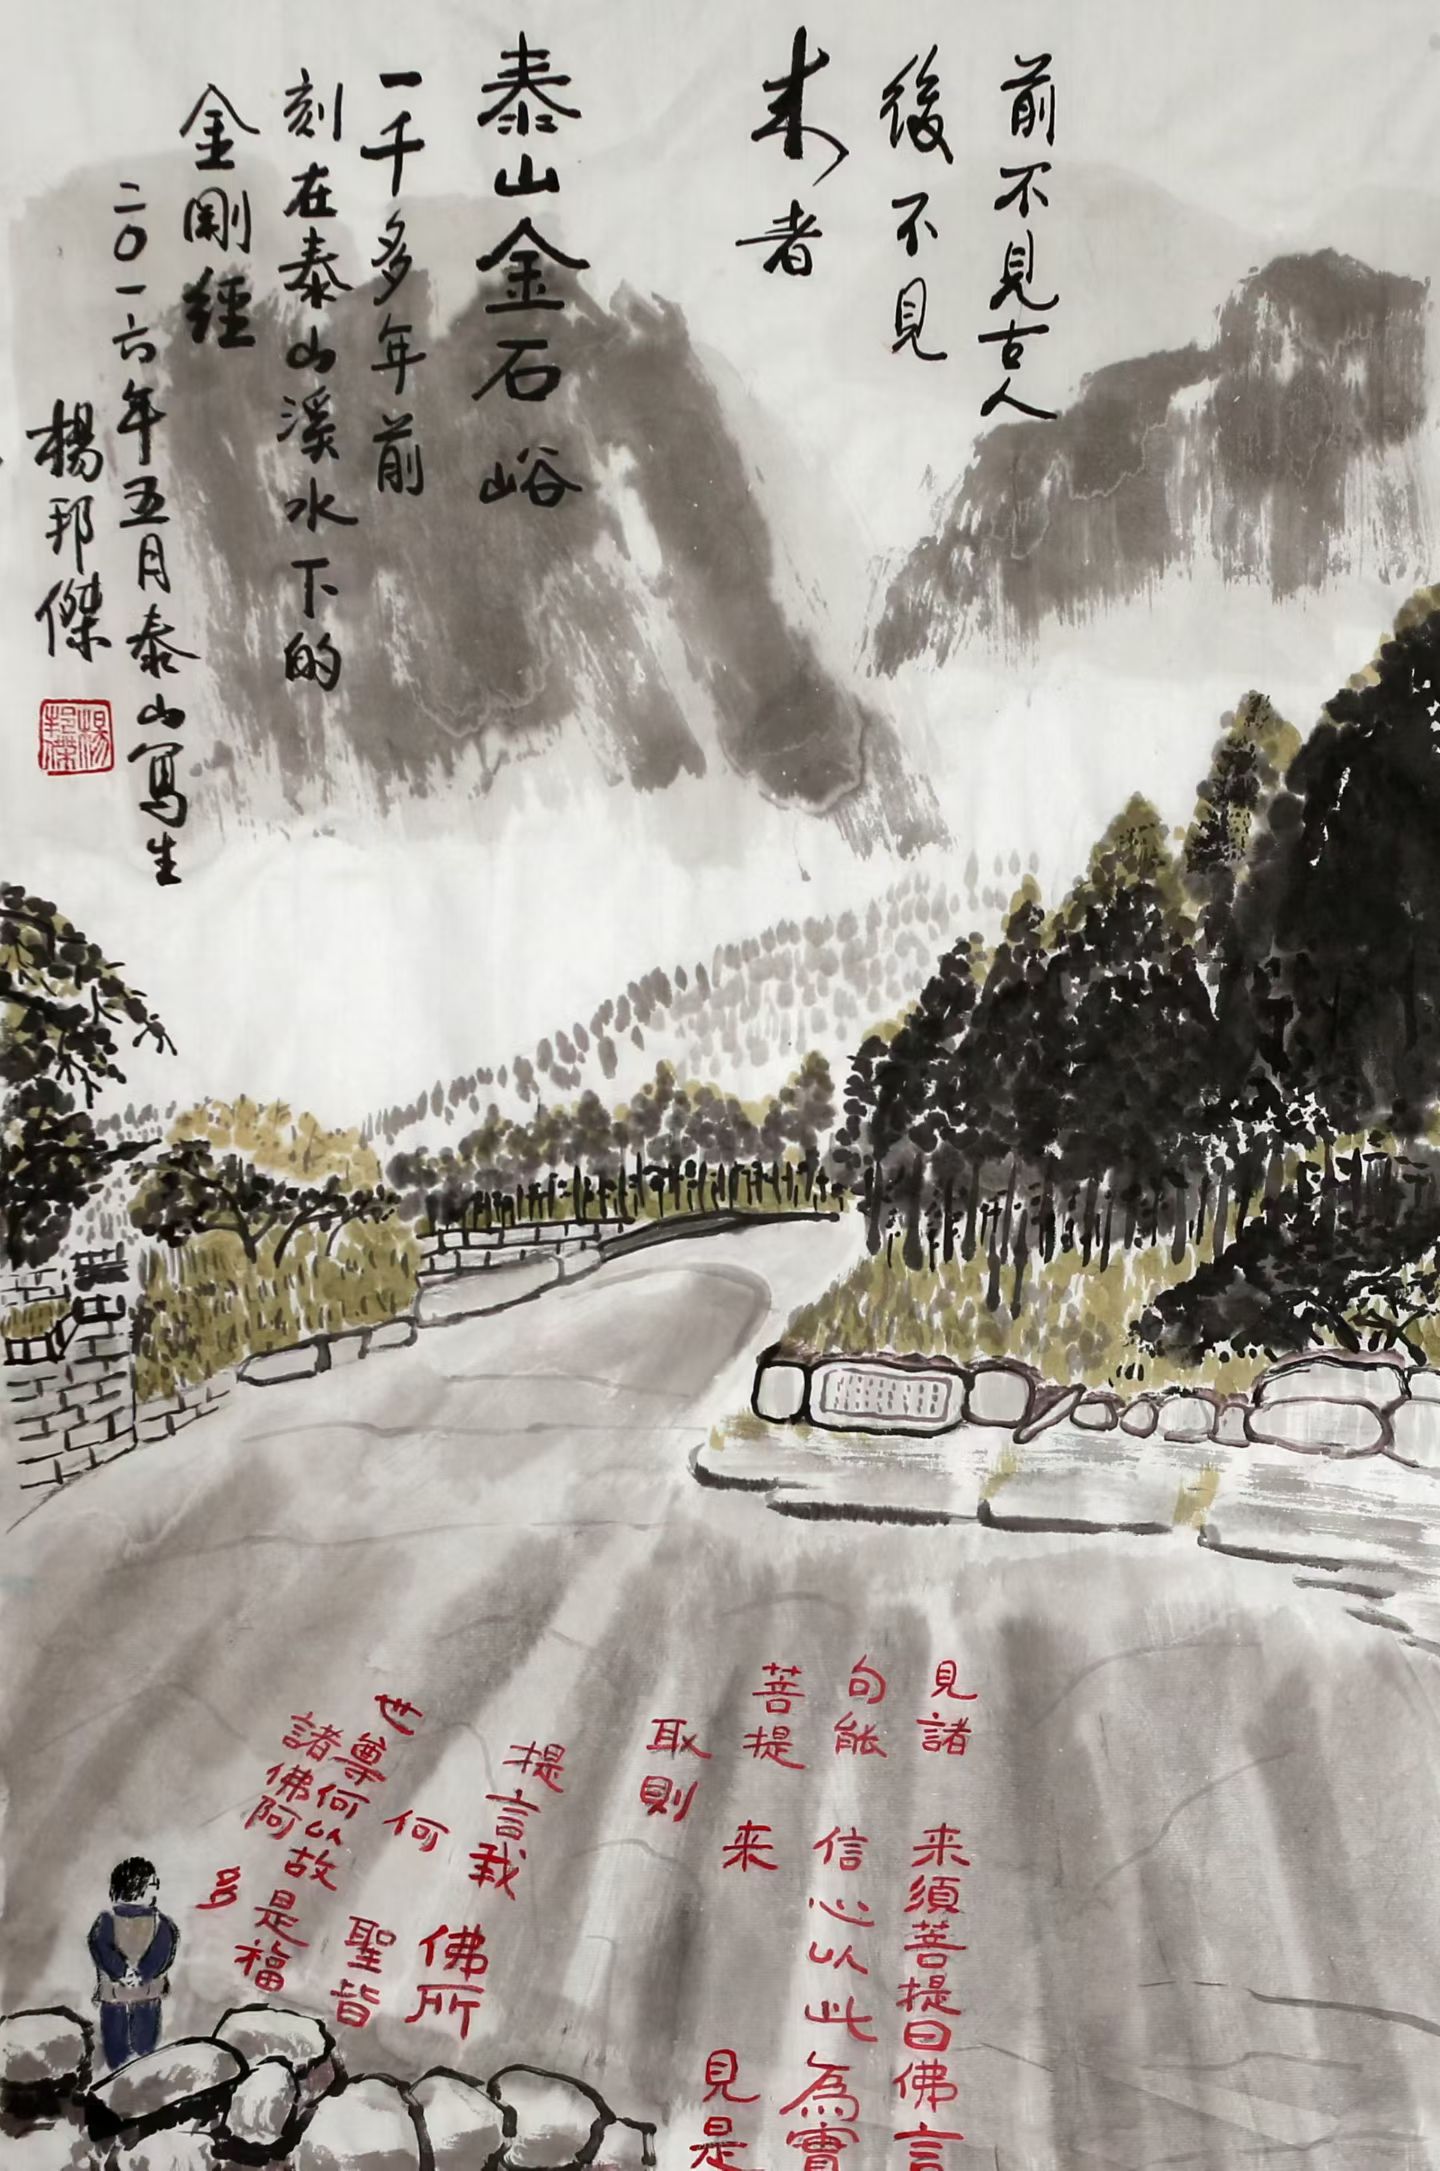 前不見古人
後不見
来者
泰山金石峪
一千多年前
刻在泰山溪水下的
金剛經
二〇一六年五月泰山写生
楊邦傑
楊邦傑
見諸 来須菩提曰佛言
句能 信心以此為實
菩提 来 見是
取則
提言哉 佛所
何 聖皆
世尊何以故
諸佛阿 是福
多